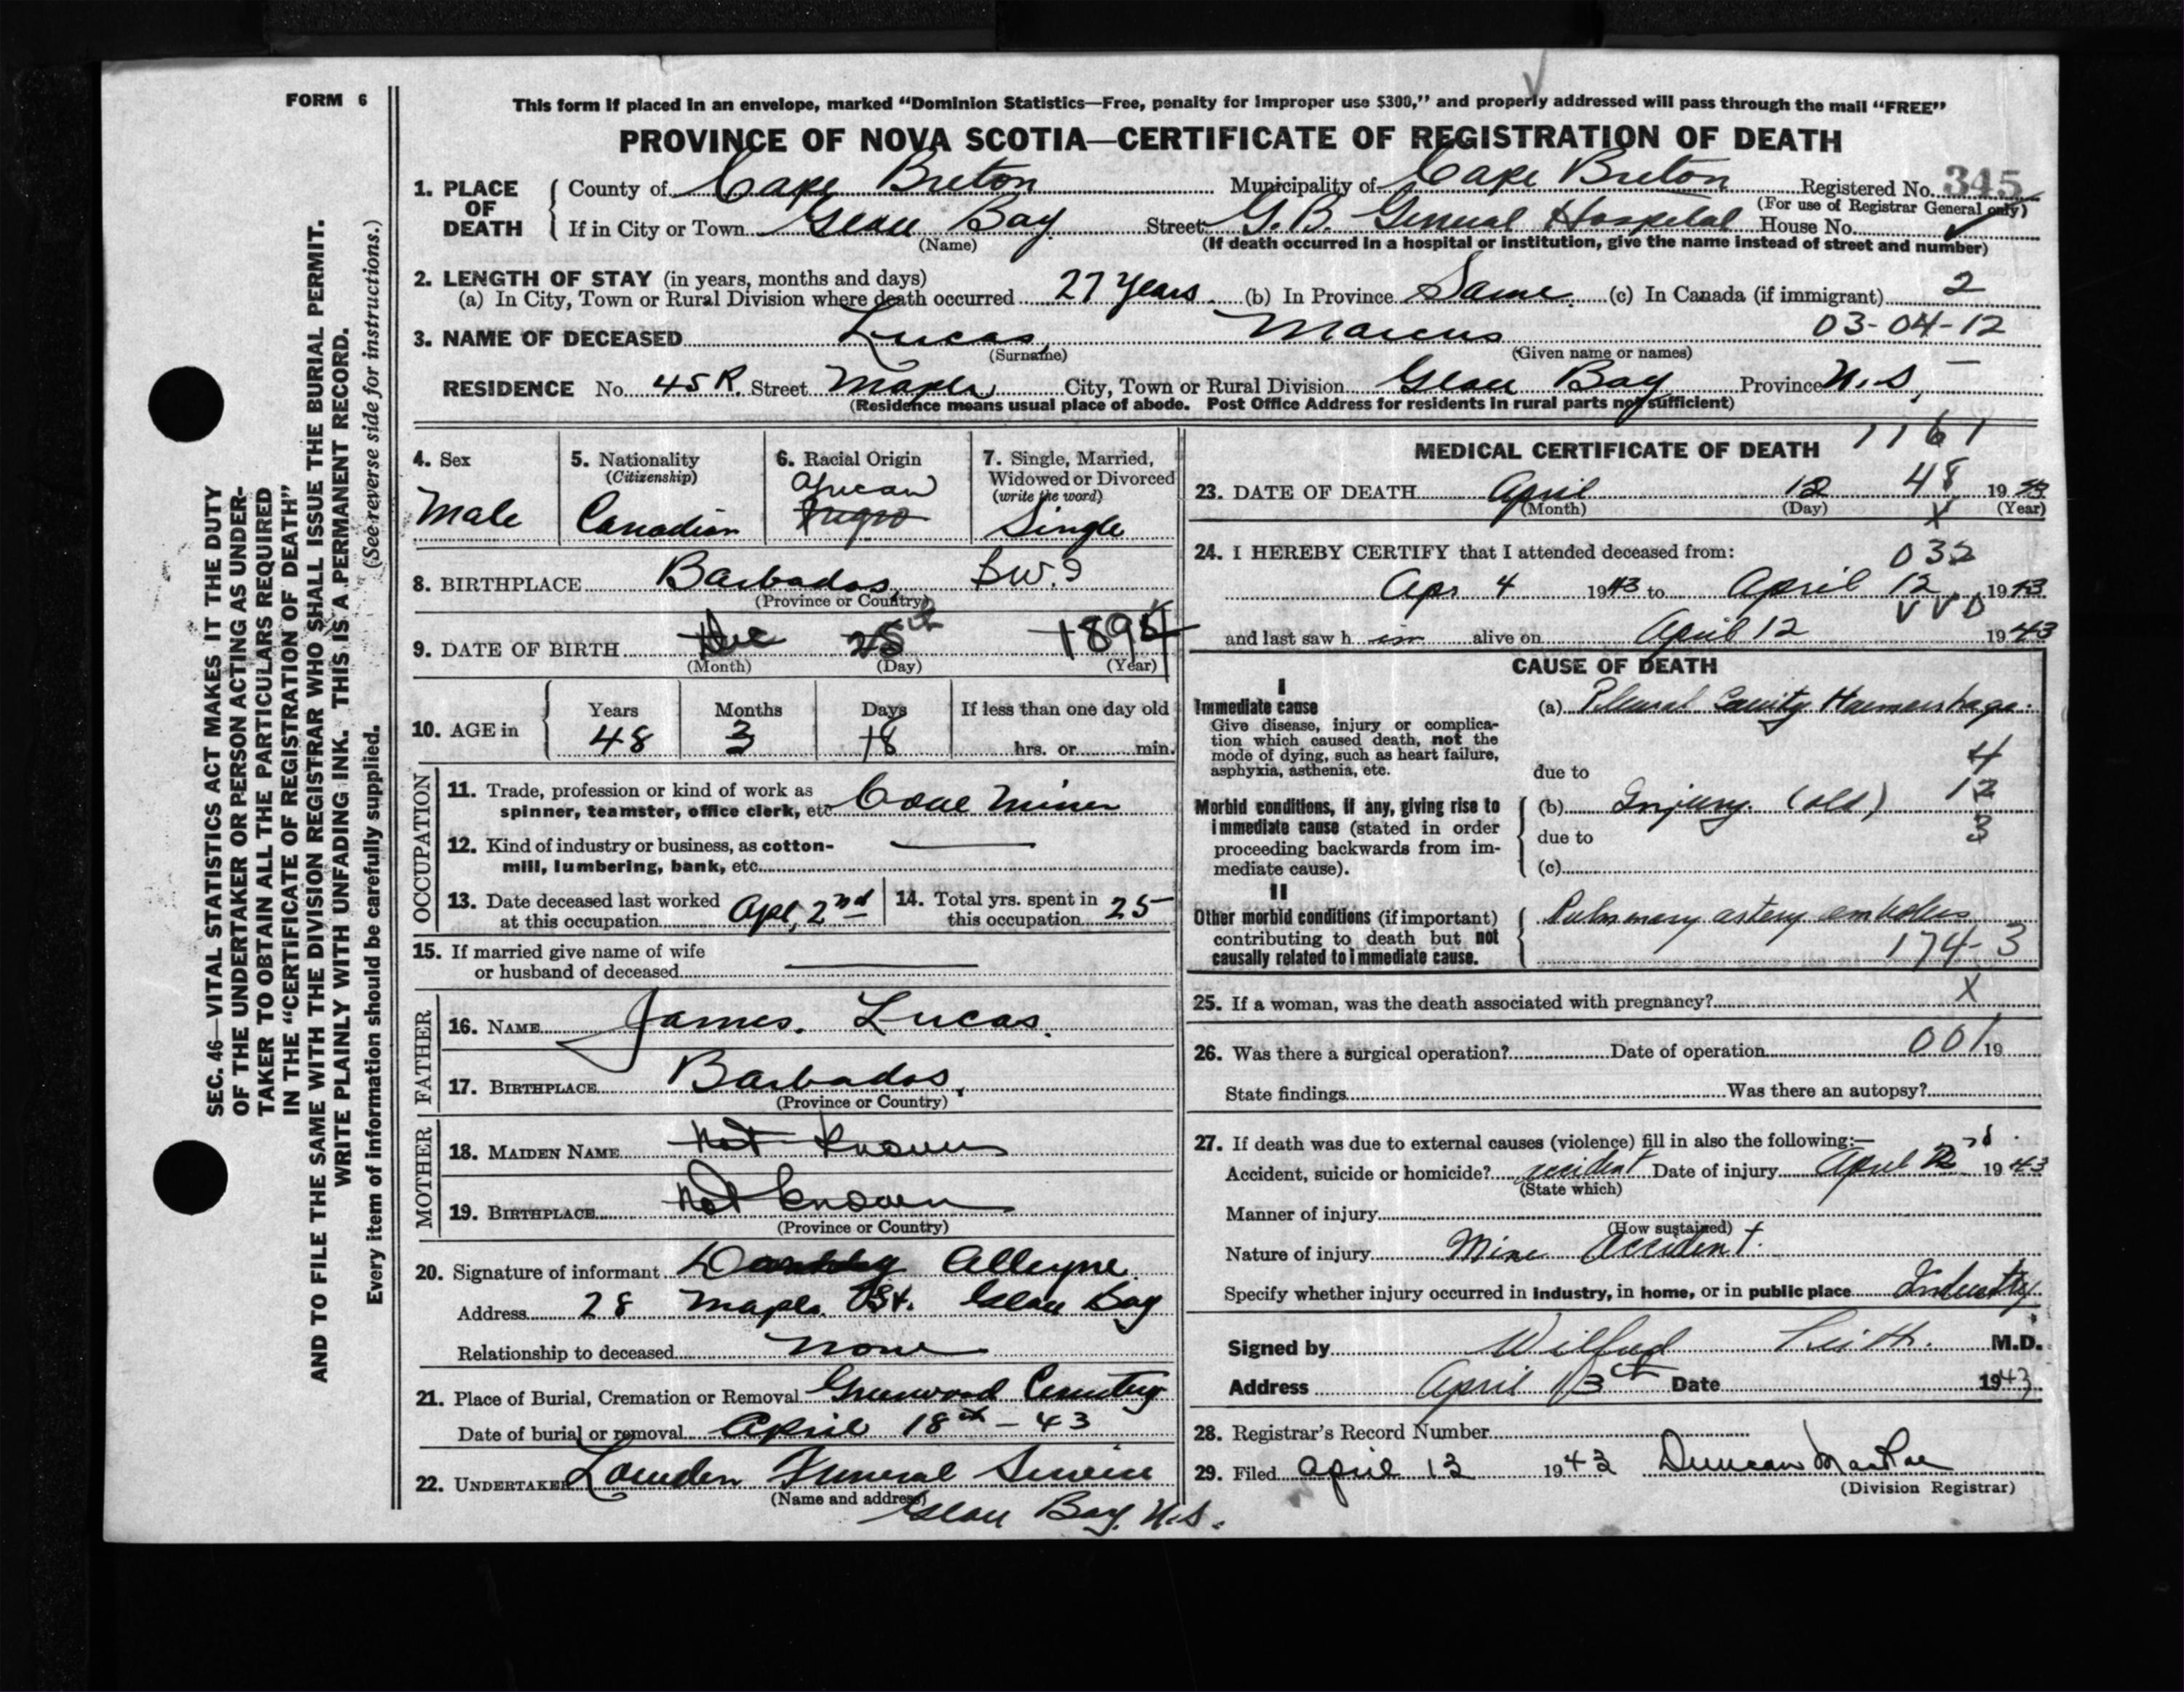 FORM 6
This form if placed in an envelope, marked “Dominion Statistics—Free, penalty for improper use $300,” and properly addressed will pass through the mail “FREE”
PROVINCE OF NOVA SCOTIA—CERTIFICATE OF REGISTRATION OF DEATH
1. PLACE OF DEATH County of Cape Breton Municipality of Cape Breton Registered No. 345
(For use of Registrar General only)
If in City or Town Glace Bay Street G.B. General Hospital House No.
(Name) (If death occurred in a hospital or institution, give the name instead of street and number)
2. LENGTH OF STAY (in years, months and days)
(a) In City, Town or Rural Division where death occurred 27 years (b) In Province Same (c) In Canada (if immigrant) 2
3. NAME OF DECEASED Lucas, Marcus 03-04-12
(Surname) (Given name or names)
RESIDENCE No. 45 R. Street Maple City, Town or Rural Division Glace Bay Province N.S,
(Residence means usual place of abode. Post Office Address for residents in rural parts not sufficient)
4. Sex
Male
5. Nationality
(Citizenship)
Canadian
6. Racial Origin
African
Negro
7. Single, Married,
Widowed or Divorced
(write the word)
Single
8. BIRTHPLACE Barbados, B.W.I
(Province or Country)
9. DATE OF BIRTH Dec 25th 1894
(Month) (Day) (Year)
10. AGE in
Years Months Days If less than one day old
48 3 18 hrs. or min.
OCCUPATION
11. Trade, profession or kind of work as
spinner, teamster, office clerk, etc. Coal Miner
12. Kind of industry or business, as cotton-
mill, lumbering, bank, etc.
13. Date deceased last worked
at this occupation Apl, 2nd
14. Total yrs. spent in
this occupation 25
15. If married give name of wife
or husband of deceased
FATHER
16. NAME James. Lucas.
17. BIRTHPLACE Barbados,
(Province or Country)
MOTHER
18. MAIDEN NAME Not Known
19. BIRTHPLACE Not Known
(Province or Country)
20. Signature of informant Alleyne
Address 28 Maple St. Glace Bay
Relationship to deceased None
21. Place of Burial, Cremation or Removal Greenwood Cemetery
Date of burial or removal April 18th - 43
22. UNDERTAKER Lowden Funeral Service
(Name and address)
Glace Bay, N.S.
MEDICAL CERTIFICATE OF DEATH 1161
23. DATE OF DEATH April 12 48 1943
(Month) (Day) X (Year)
24. I HEREBY CERTIFY that I attended deceased from: 032
Apr 4 1943 to April 12 1943
and last saw him alive on April 12 1943
CAUSE OF DEATH
I
Immediate cause
Give disease, injury or complica-
tion which caused death, not the
mode of dying, such as heart failure,
asphyxia, asthenia, etc.
(a) Pleural Cavity Haemorrhage.
4
due to
Morbid conditions, if any, giving rise to
immediate cause (stated in order
proceeding backwards from im-
mediate cause).
(b) Injury (old) 12
due to 3
(c)
II
Other morbid conditions (if important)
contributing to death but not
causally related to immediate cause.
Pulmonary artery embolus
174-3
25. If a woman, was the death associated with pregnancy? X
26. Was there a surgical operation? Date of operation 001 19
State findings Was there an autopsy?
27. If death was due to external causes (violence) fill in also the following:—
Accident, suicide or homicide? accident Date of injury April 2 1943
(State which)
Manner of injury
(How sustained)
Nature of injury Mine Accident.
Specify whether injury occurred in industry, in home, or in public place Industry
Signed by Wilfred M.D.
Address April 13th Date 1943
28. Registrar's Record Number
29. Filed April 13 1943 Duncan MacRae
(Division Registrar)
SEC. 46—VITAL STATISTICS ACT MAKES IT THE DUTY
OF THE UNDERTAKER OR PERSON ACTING AS UNDER-
TAKER TO OBTAIN ALL THE PARTICULARS REQUIRED
IN THE “CERTIFICATE OF REGISTRATION OF DEATH”
AND TO FILE THE SAME WITH THE DIVISION REGISTRAR WHO SHALL ISSUE THE BURIAL PERMIT.
WRITE PLAINLY WITH UNFADING INK. THIS IS A PERMANENT RECORD.
Every item of information should be carefully supplied. (See reverse side for instructions.)